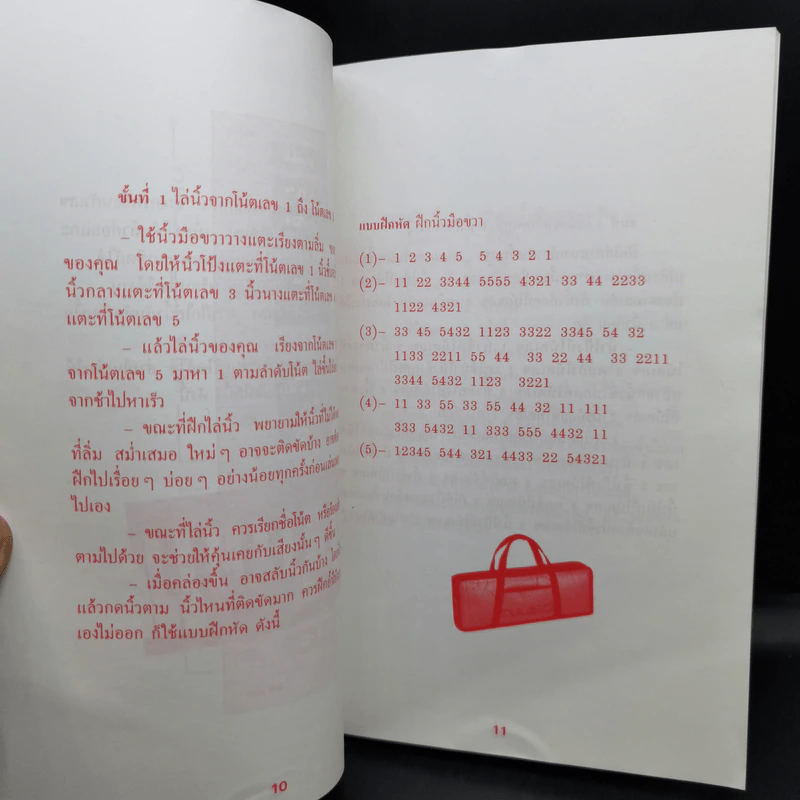 ขั้นที่ 1 ไล่นิ้วจากโน้ตเลข 1 ถึง โน้ตเลข
– ใช้นิ้วมือขวาวางแตะเรียงตามลิ่ม
ของคุณ โดยให้นิ้วโป้งแตะที่โน้ตเลข 1
นิ้วกลางแตะที่โน้ตเลข 3 นิ้วนางแตะที่โน้ตเลข
แตะที่โน้ตเลข 5
– แล้วไล่นิ้วของคุณ เรียงจากโน้ตเลข
จากโน้ตเลข 5 มาหา 1 ตามลำดับโน้ต
จากช้าไปหาเร็ว
– ขณะที่ฝึกไล่นิ้ว พยายามให้นิ้วที่
ที่ลิ่ม สม่ำเสมอ ใหม่ๆ อาจจะติดขัดบ้าง
ฝึกไปเรื่อยๆ บ่อยๆ อย่างน้อยทุกครั้งก่อนเล่น
ไปเอง
– ขณะที่ไล่นิ้ว ควรเรียกชื่อโน้ต
ตามไปด้วย จะช่วยให้คุ้นเคยกับเสียงนั้นๆ ดีขึ้น
– เมื่อคล่องขึ้น อาจสลับนิ้วกันบ้าง
แล้วกดนิ้วตาม นิ้วไหนที่ติดขัดมาก ควรฝึก
เองไม่ออก ก็ใช้แบบฝึกหัด ดังนี้
10
แบบฝึกหัด ฝึกนิ้วมือขวา
(1)– 1 2 3 4 5 5 4 3 2 1
(2)– 11 22 3344 5555 4321 33 44 2233
1122 4321
(3)– 33 45 5432 1123 3322 3345 54 32
1133 2211 55 44 33 22 44 33 2211
3344 5432 1123 3221
(4)– 11 33 55 33 55 44 32 11 111
333 5432 11 333 555 4432 11
(5)– 12345 544 321 4433 22 54321
11